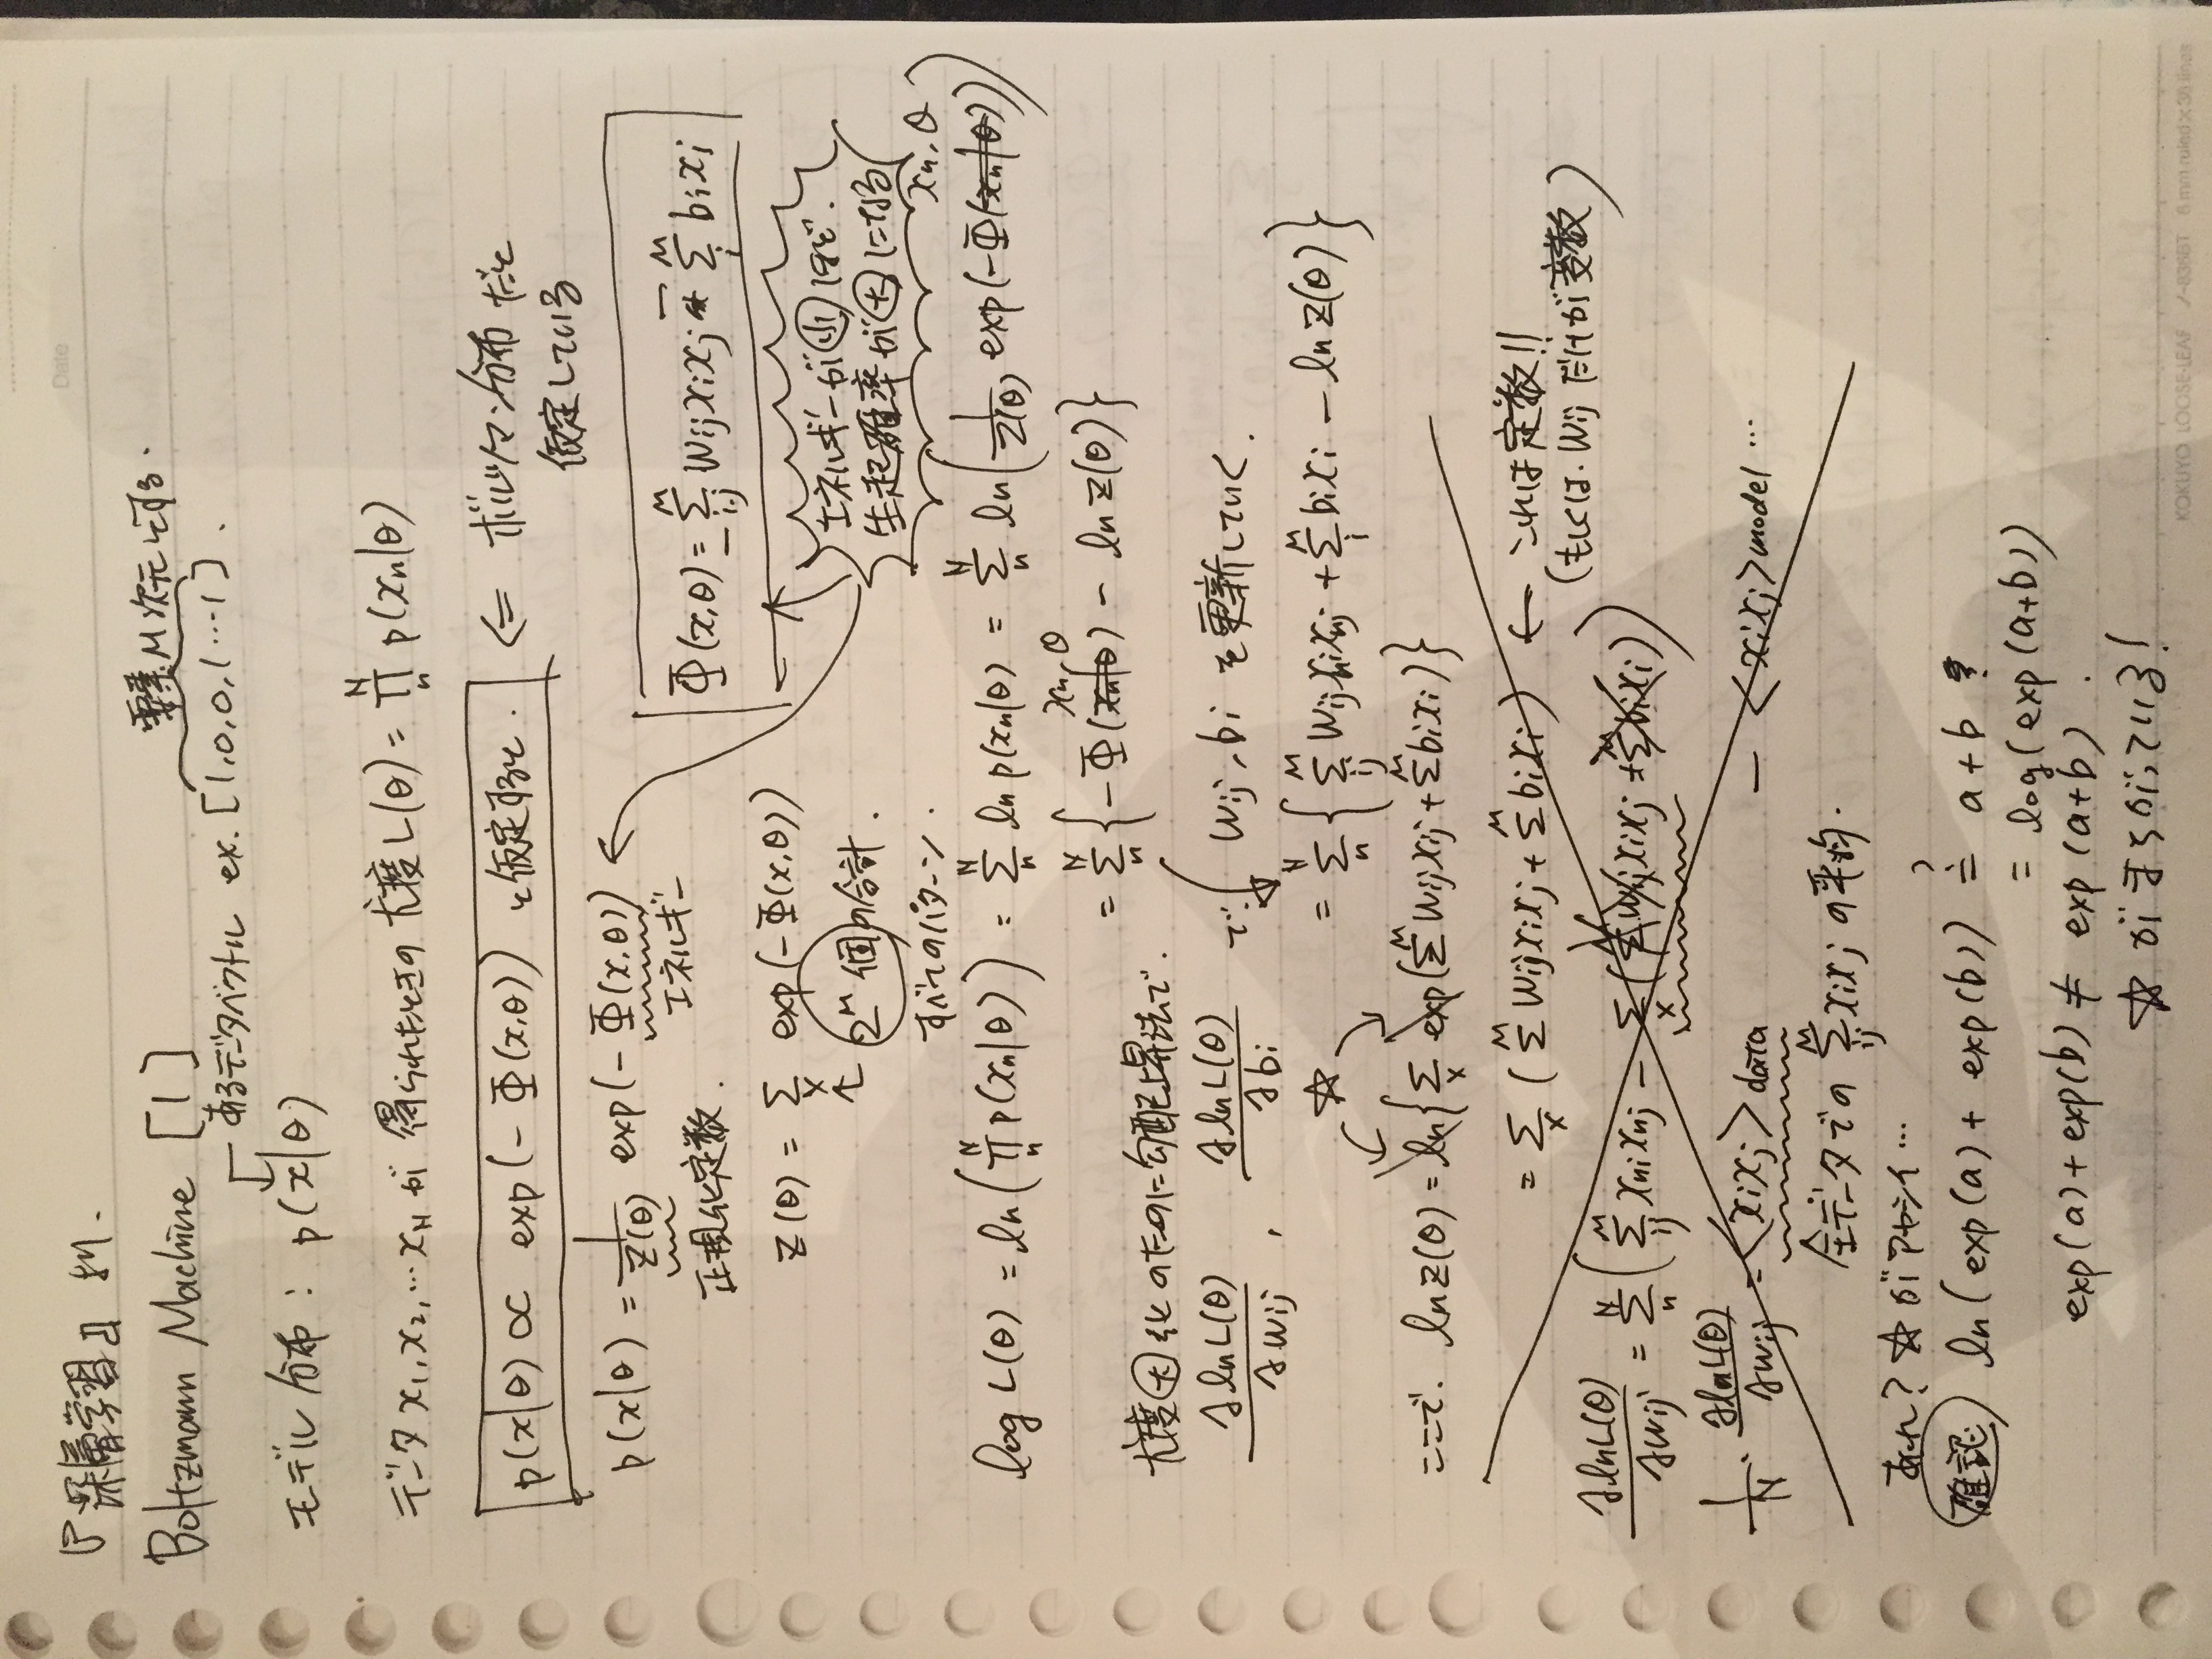 Date
『深層学習』より.
Boltzmann Machine [1]
要素M次元とする.
あるデータベクトル ex. [1,0,0,1…1].
モデル分布: p(x|θ)
データ x₁,x₂,…x_N が 得られたときの 尤度 L(θ) = ∏_n^N p(x_n|θ)
p(x|θ) ∝ exp(-Φ(x,θ)) と仮定すると. ⇐ ボルツマン分布だと
仮定している
p(x|θ) = 1/Z(θ) exp(-Φ(x,θ))
正規化定数. エネルギー
Φ(x,θ) = -Σ_{i,j}^M w_ij x_i x_j - Σ_i^M b_i x_i
Z(θ) = Σ_x exp(-Φ(x,θ))
↑ 2^M個の合計.
すべてのパターン.
エネルギーが小ほど.
生起確率が大になる
log L(θ) = ln(∏_n^N p(x_n|θ)) = Σ_n^N ln p(x_n|θ) = Σ_n^N ln(1/Z(θ) exp(-Φ(x_n,θ)))
= Σ_n^N {-Φ(x_n,θ) - ln Z(θ)}
尤度大化のために勾配上昇法で.
∂lnL(θ)/∂w_ij , ∂lnL(θ)/∂b_i で w_ij, b_i を更新していく.
☆ = Σ_n^N {Σ_ij^M w_ij x_ni x_nj + Σ_i^M b_i x_i - ln Z(θ)}
ここで. ln Z(θ) = ln{Σ_x exp(Σ^M w_ij x_ij + Σ^M b_i x_i)}
= Σ_x (Σ^M w_ij x_i x_j + Σ^M b_i x_i) ← これは定数!!
(もしくは. w_ij だけが変数)
∂lnL(θ)/∂w_ij = Σ_n^N (Σ_ij^M x_ni x_nj - Σ_x (Σ^M w_ij x_i x_j + Σ^M b_i x_i))
1/N · ∂lnL(θ)/∂w_ij = <x_i x_j>data - <x_i x_j>model …
全データでの Σ_ij^M x_i x_j の平均.
あれ? ☆がアヤシイ…
確認 ln(exp(a) + exp(b)) ≟ a+b ?
= log(exp(a+b))
exp(a)+exp(b) ≠ exp(a+b).
☆がまちがっている!
KOKUYO LOOSE-LEAF ノ-836BT 6 mm ruled×36 lines